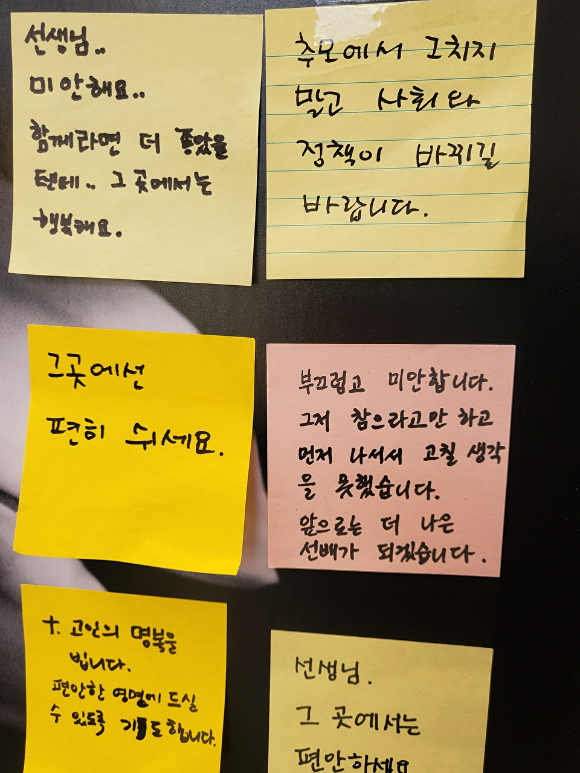 선생님..
미안해요..
함께라면 더 좋았을
텐데.. 그 곳에서는
행복해요.
추모에서 그치지
말고 사회와
정책이 바뀌길
바랍니다.
그곳에선
편히 쉬세요.
부끄럽고 미안합니다.
그저 참으라고만 하고
먼저 나서서 고칠 생각
을 못했습니다.
앞으로는 더 나은
선배가 되겠습니다.
+. 고인의 명복을
빕니다.
편안한 영면에 드실
수 있도록 기도합니다.
선생님.
그 곳에서는
편안하세요